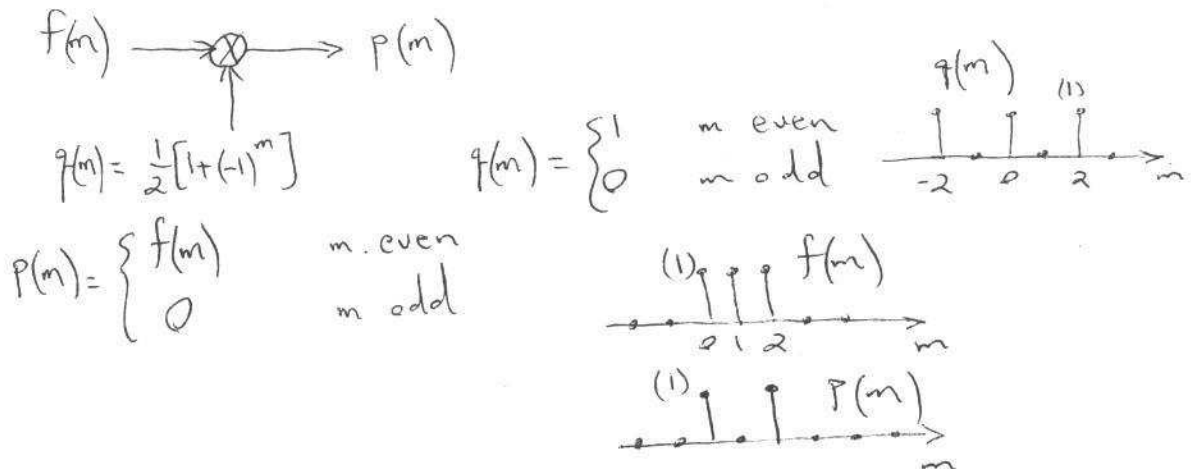 f(m) p(m)
q(m) = 1/2 [1+(-1)^m]
q(m) = { 1 m even
0 m odd
q(m)
(1)
-2 0 2 m
p(m) = { f(m) m. even
0 m odd
(1) f(m)
0 1 2 m
(1) p(m)
m